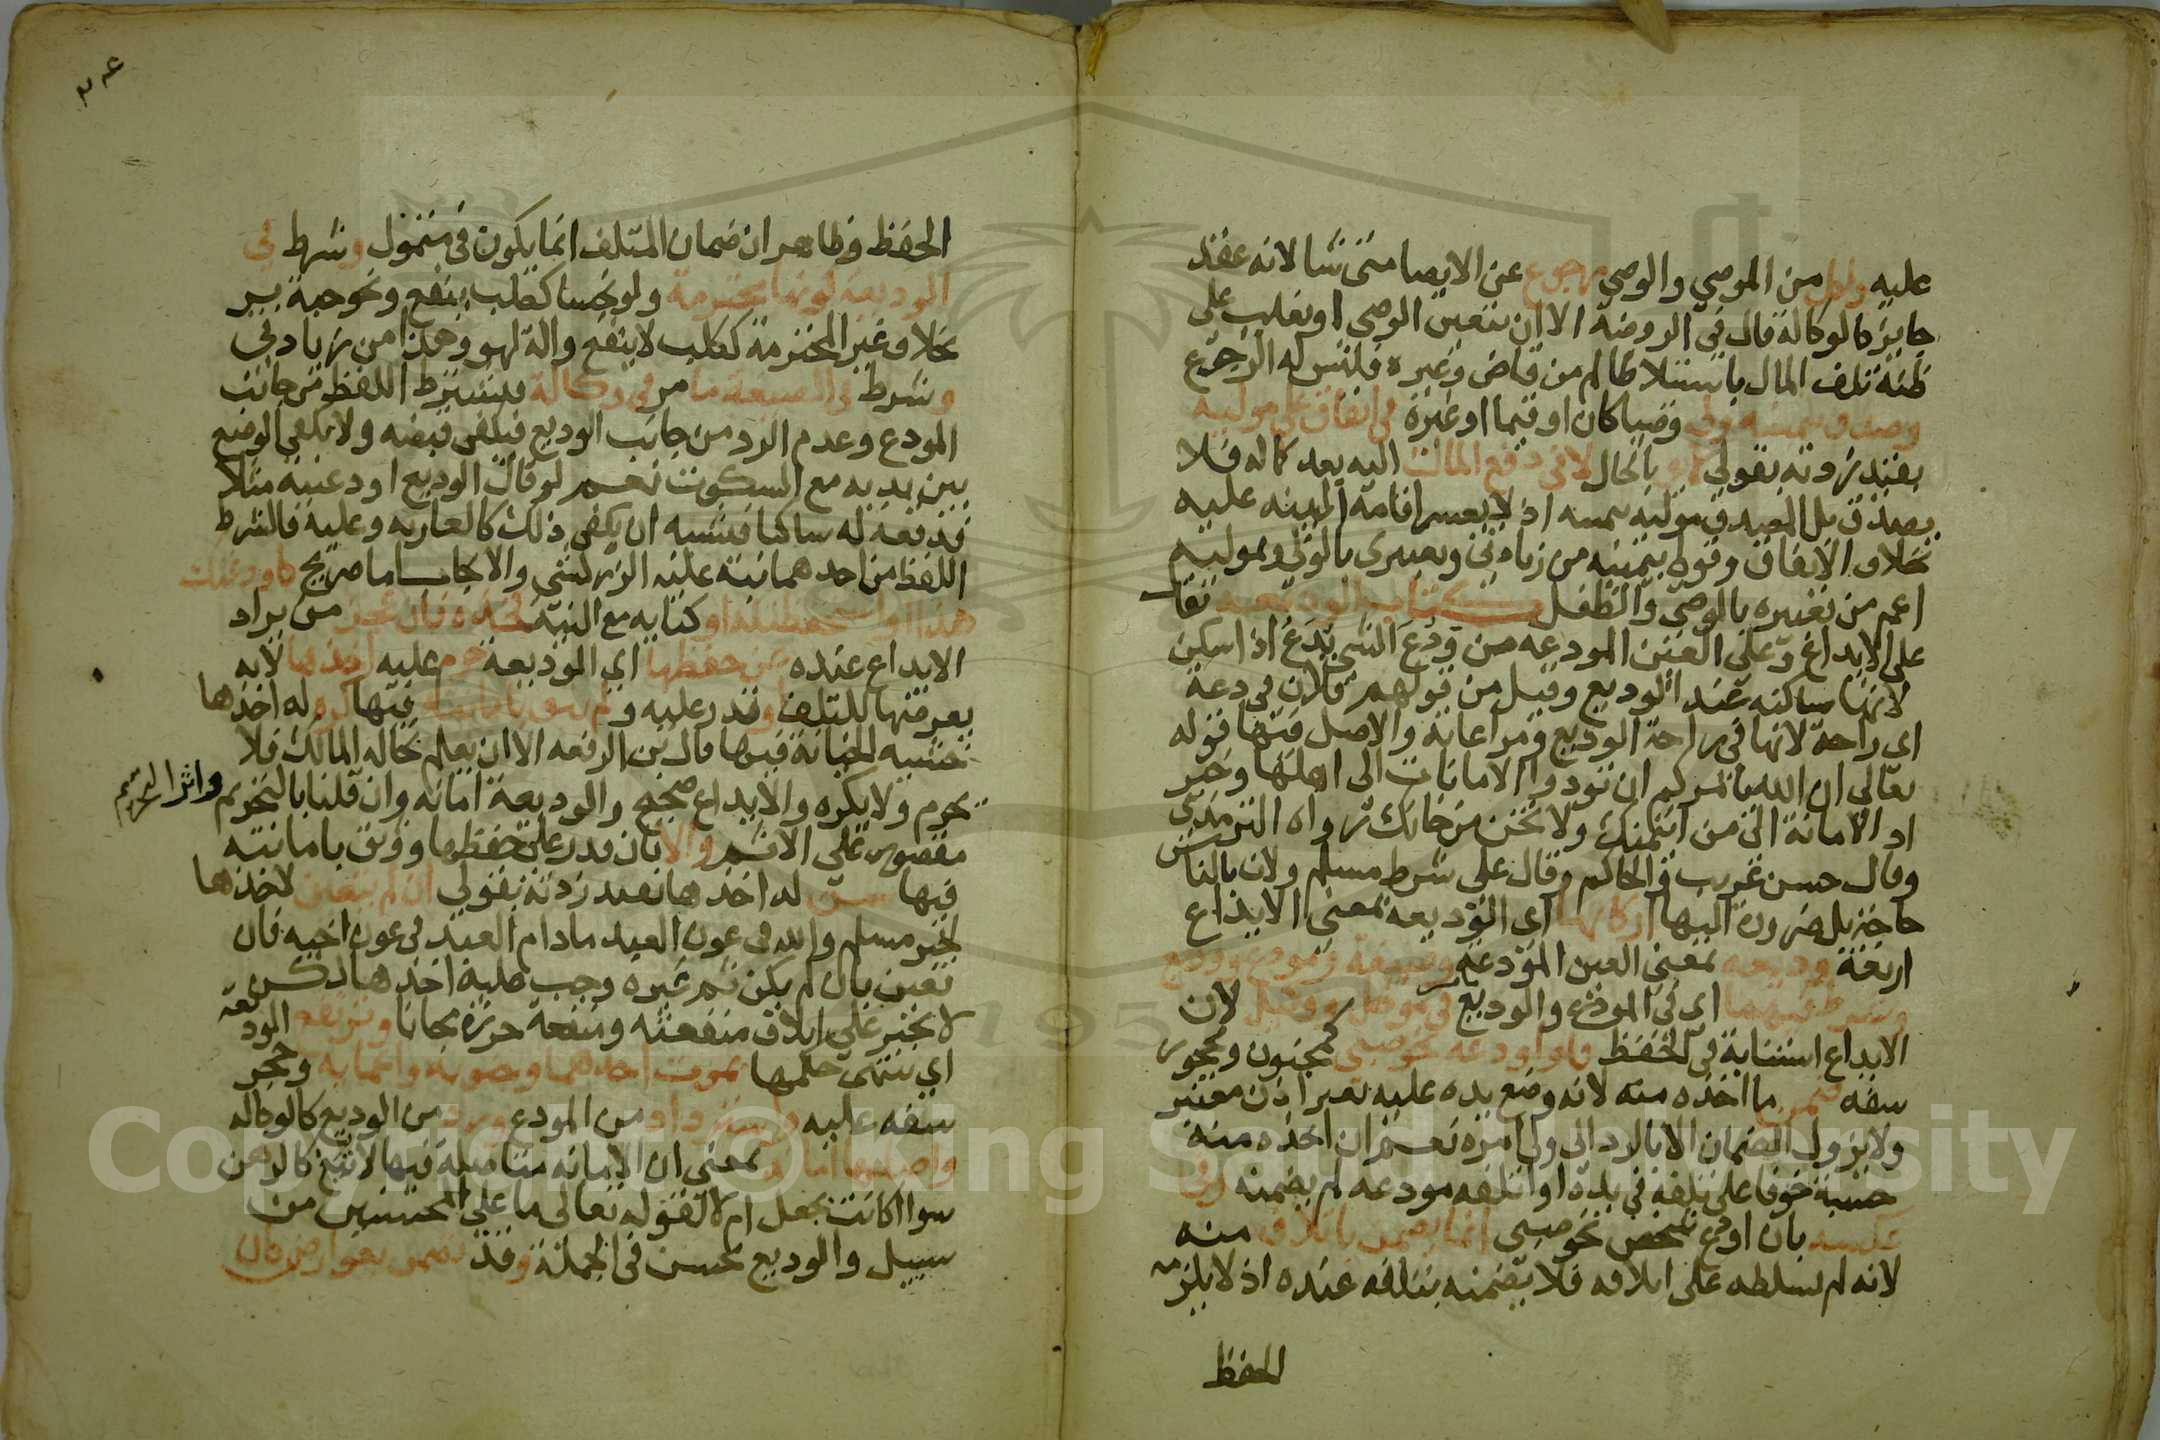 عليه ولكل من الموصي والوصي رجوع عن الايصا متى شا لانه عقد
جايز كالوكالة قال في الروضة الا ان يتعين الوصي او يغلب على
ظنه تلف المال باستيلا ظالم من قاض وغيره فليس له الرجوع
وصدق بيمينه ولي وصيا كان او قيما او غيره في انفاق على موليه
بقيد زدته بقولي بالحال لا في دفع المال اليه بعد كماله فلا
يصدق بل المصدق موليه بيمينه اذ لا يعسر اقامة البينه عليه
بخلاف الانفاق وقولي بيمينه من زيادتي وتعبيري بالولي وبموليه
اعم من تعبيره بالوصي والطفل كتاب الوديعة تقال
على الايداع وعلى العين المودعه من ودع الشي يدع اذا سكن
لانها ساكنه عند الوديع وقيل من قولهم فلان في دعة
اي راحة لانها في راحة الوديع ومراعاته والاصل فيها قوله
تعالى ان الله يامركم ان تودوا الامانات الى اهلها وخبر
اد الامانة الى من ائتمنك ولا تخن من خانك رواه الترمذي
وقال حسن غريب والحاكم وقال على شرط مسلم ولان بالناس
حاجة بل ضرورة اليها اركانها اي الوديعه بمعنى الايداع
اربعة وديعه بمعنى العين المودعه وصيغة ومودع ووديع
وشرط فيهما اي في المودع والوديع ما مر في موكل ووكيل لان
الايداع استنابة في الحفظ فلو اودعه نحو صبي كمجنون ومحجور
سفه ضمن ما اخذه منه لانه وضع يده عليه بغير اذن معتبر
ولا يزول الضمان الا بالرد الى ولي امره نعم ان اخذه منه
حسبة خوفا على تلفه في يده او اتلفه مودعه لم يضمنه وفي
عكسه بان اودع شخص نحو صبي انما يضمن باتلافه منه
لانه لم يسلطه على اتلافه فلا يضمنه بتلفه عنده اذ لا يلزمه
الحفظ
الحفظ وظاهر ان ضمان المتلف انما يكون في متمول وشرط في
الوديعه كونها محترمة ولو نجسا ككلب ينفع ونحو حبة بر
بخلاف غير المحترمة ككلب لا ينفع والة لهو وهذا من زيادتي
وشرط في الصيغة ما مر في وكالة فيشترط اللفظ من جانب
المودع وعدم الرد من جانب الوديع فيكفي قبضه ولا يكفي الوضع
بين يديه مع السكوت نعم لو قال الوديع اودعنيه مثلا
فدفعه له ساكتا فيشبه ان يكفي ذلك كالعاريه وعليه فالشرط
اللفظ من احدهما نبه عليه الزركشي والايجاب اما صريح كاودعتك
هذا او استحفظتكه او كنايه مع النية كخذه فان عجز من يراد
الايداع عنده عن حفظها اي الوديعة حرم عليه اخذها لانه
يعرضها للتلف او قدر عليه ولم يثق بامانته فيها كره له اخذها
خشيه الخيانة فيها قال بن الرفعه الا ان يعلم بحاله المالك فلا
يحرم ولا يكره والايداع صحيح والوديعة امانه وان قلنا بالتحريم واثر التحريم
مقصور على الاثم والا بان قدر على حفظها ووثق بامانته
فيها سن له اخذها بقيد زدته بقولي ان لم يتعين لاخذها
لخبر مسلم والله في عون العبد مادام العبد في عون اخيه فان
تعين بان لم يكن ثم غيره وجب عليه اخذها لكن
لا يجبر على اتلاف منفعته ومنفعة حرزه مجانا وترتفع الوديعة
اي ينتهى حكمها بموت احدهما وجنونه واغمايه وحجر
سفه عليه وباسترداد من المودع ورد من الوديع كالوكاله
واصلها امانة بمعنى ان الامانه متاصلة فيها لا تبع كالرهن
سوا اكانت بجعل ام لا لقوله تعالى ما على المحسنين من
سبيل والوديع محسن في الجملة وقد تضمن بعوارض كان